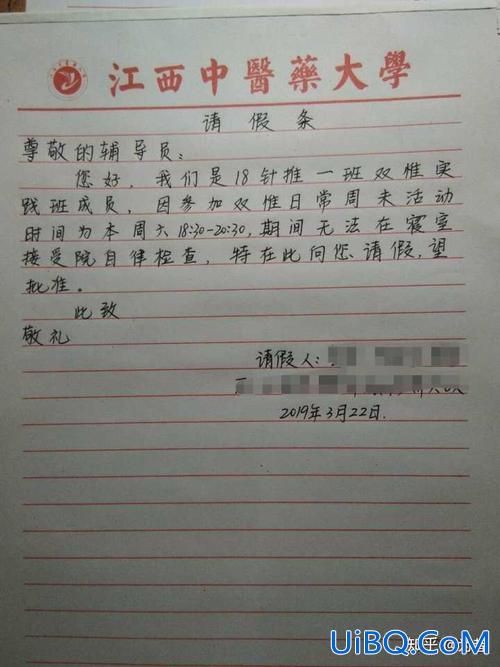 江西中醫藥大學
请假条
尊敬的辅导员：
您好，我们是18针推一班双惟实
践班成员，因参加双惟日常周末活动
时间为本周六18:30-20:30，期间无法在寝室
接受院自律检查，特在此向您请假，望
批准。
此致
敬礼
请假人：
2019年3月22日.
知乎
UiBQ.CoM